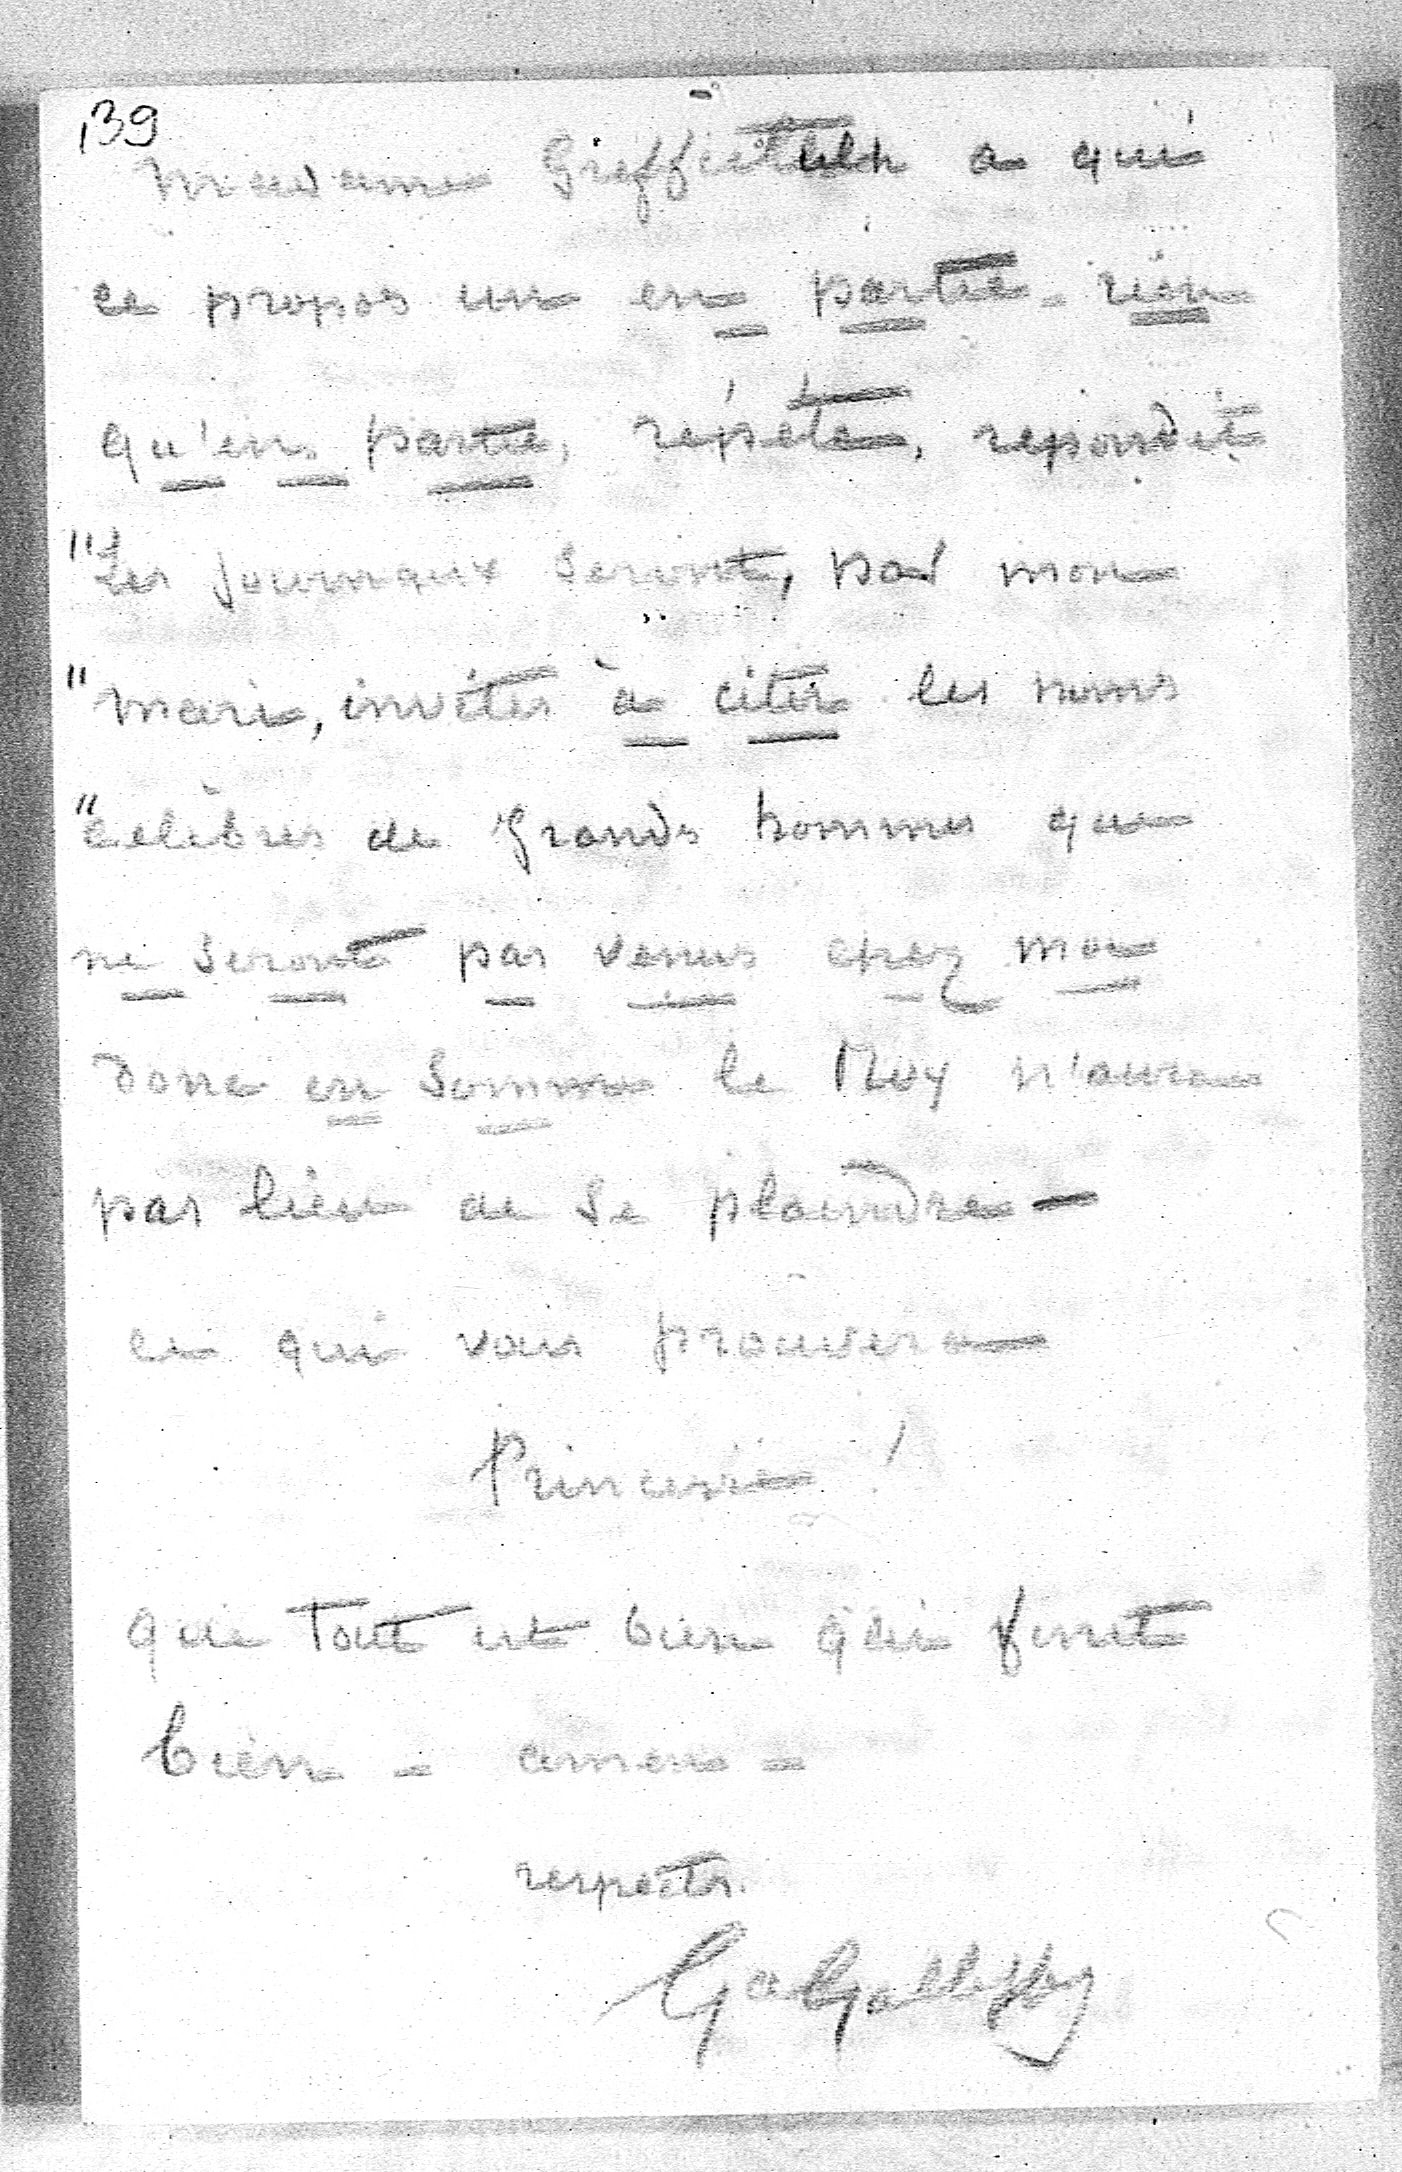 139
Madame a qui
ce propos un en partie - rien
qu'en partie, répété, repondit
"Les journaux seront, par mon
"mari, invités à citer les noms
"celèbres de grands hommes que
ne seront pas venus chez moi
donc en somme le Muy n'aura
pas lieu de se plaindre —
ce qui vous prouvera
Princesse !
que tout est bien qui finit
bien - amen -
respects.